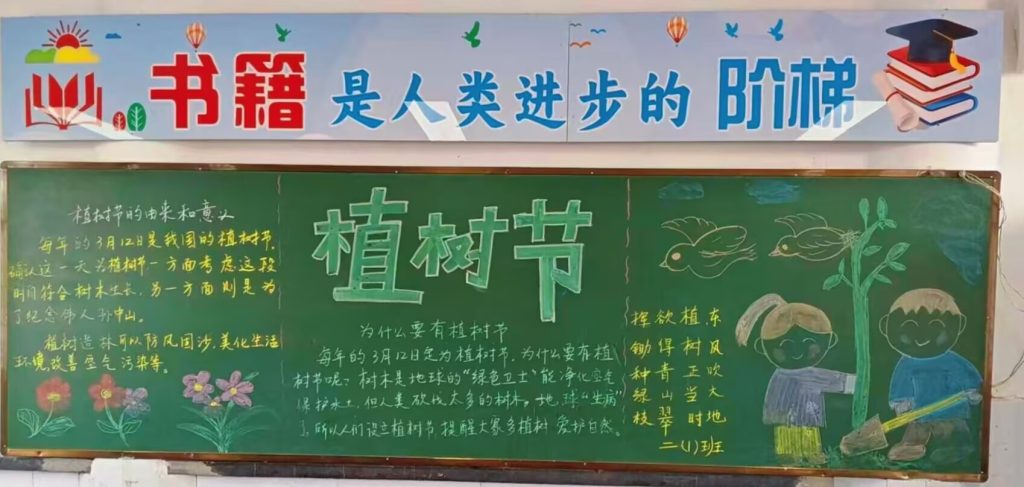 书籍是人类进步的阶梯
植树节的由来和意义
每年的3月12日是我国的植树节,
确认这一天为植树节一方面考虑这段
时间符合树木生长,另一方面则是为
了纪念伟人孙中山。
植树造林可以防风固沙,美化生活
环境,改善空气污染等。
植树节
为什么要有植树节
每年的3月12日定为植树节,为什么要有植
树节呢?树木是地球的“绿色卫士”能净化空气
保护水土,但人类砍伐太多的树木。地球“生病”
了,所以人们设立植树节提醒大家多植树 爱护自然。
东风吹大地
植树正当时
欲得青山翠
挥锄种绿枝
二(1)班